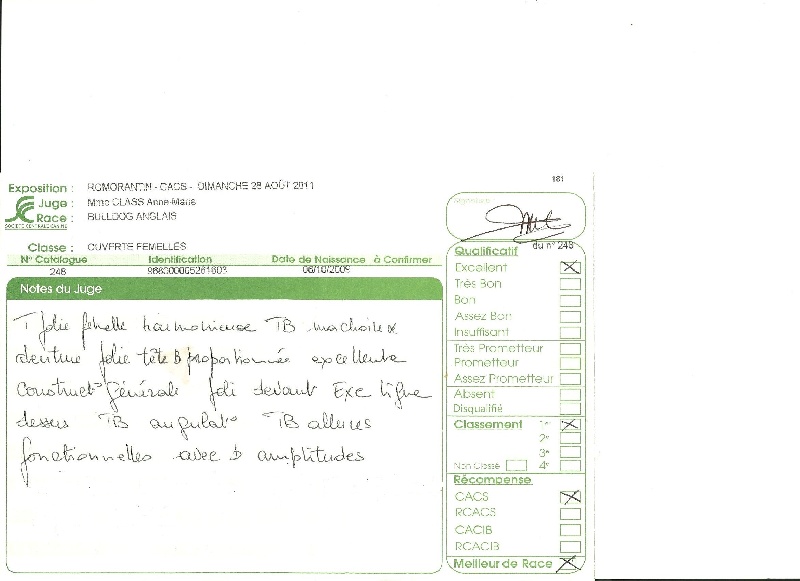 161
Exposition : ROMORANTIN - CACS - DIMANCHE 28 AOÛT 2011
Juge : Mme CLASS Anne-Marie
Race : BULLDOG ANGLAIS
SOCIÉTÉ CENTRALE CANINE
Signature
Classe : OUVERTE FEMELLES
du n° 248
N° Catalogue Identification Date de Naissance à Confirmer
248 968000005261603 06/10/2009
Notes du Juge
T jolie femelle harmonieuse TB machoire &
denture jolie tête B proportionnée excellente
Construct° Générale joli devant Exc ligne
dessus TB angulat° TB allures
fonctionnelles avec b amplitudes
Qualificatif
Excellent
Très Bon
Bon
Assez Bon
Insuffisant
Très Prometteur
Prometteur
Assez Prometteur
Absent
Disqualifié
Classement 1er
2e
3e
Non Classé 4e
Récompense
CACS
RCACS
CACIB
RCACIB
Meilleur de Race